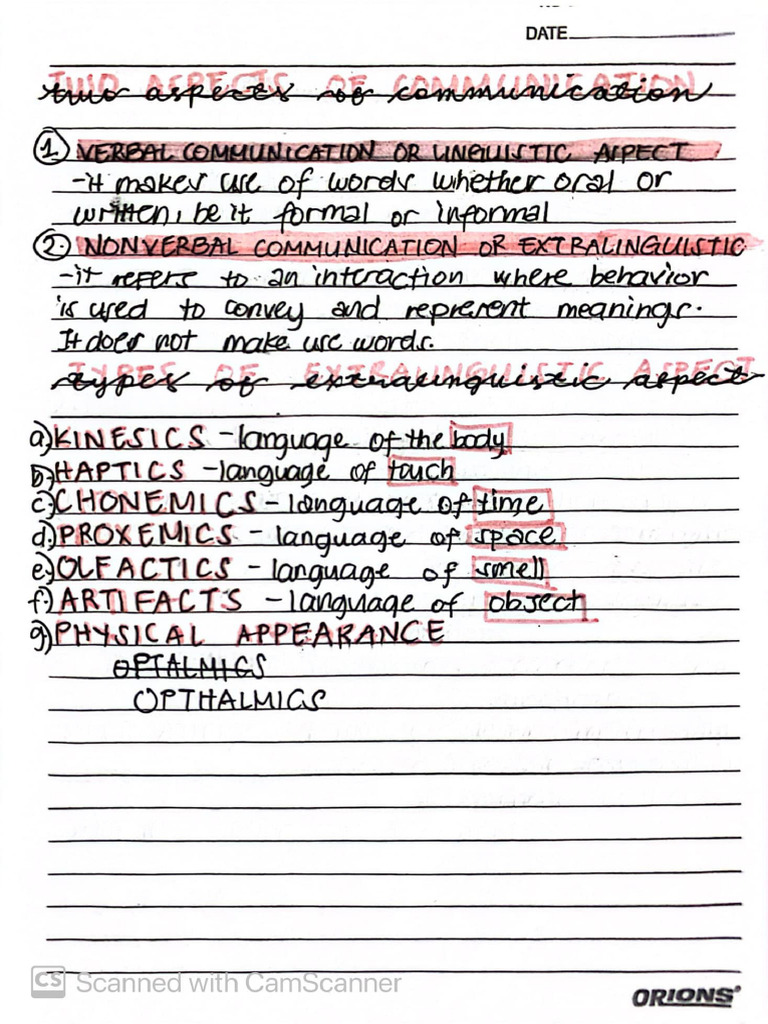 DATE
TWO ASPECTS OF COMMUNICATION
two aspects of communication
1. VERBAL COMMUNICATION OR LINGUISTIC ASPECT
-it makes use of words whether oral or
written, be it formal or informal
2. NONVERBAL COMMUNICATION OR EXTRALINGUISTIC
-it refers to an interaction where behavior
is used to convey and represent meanings.
It does not make use words.
TYPES OF EXTRALINGUISTIC ASPECT
types of extralinguistic aspect
a) KINESICS - language of the body
b) HAPTICS - language of touch
c) CHONEMICS - language of time
d) PROXEMICS - language of space
e) OLFACTICS - language of smell
f) ARTIFACTS - language of object
g) PHYSICAL APPEARANCE
OPTALMICS
OPTHALMICS
CS Scanned with CamScanner
ORIONS